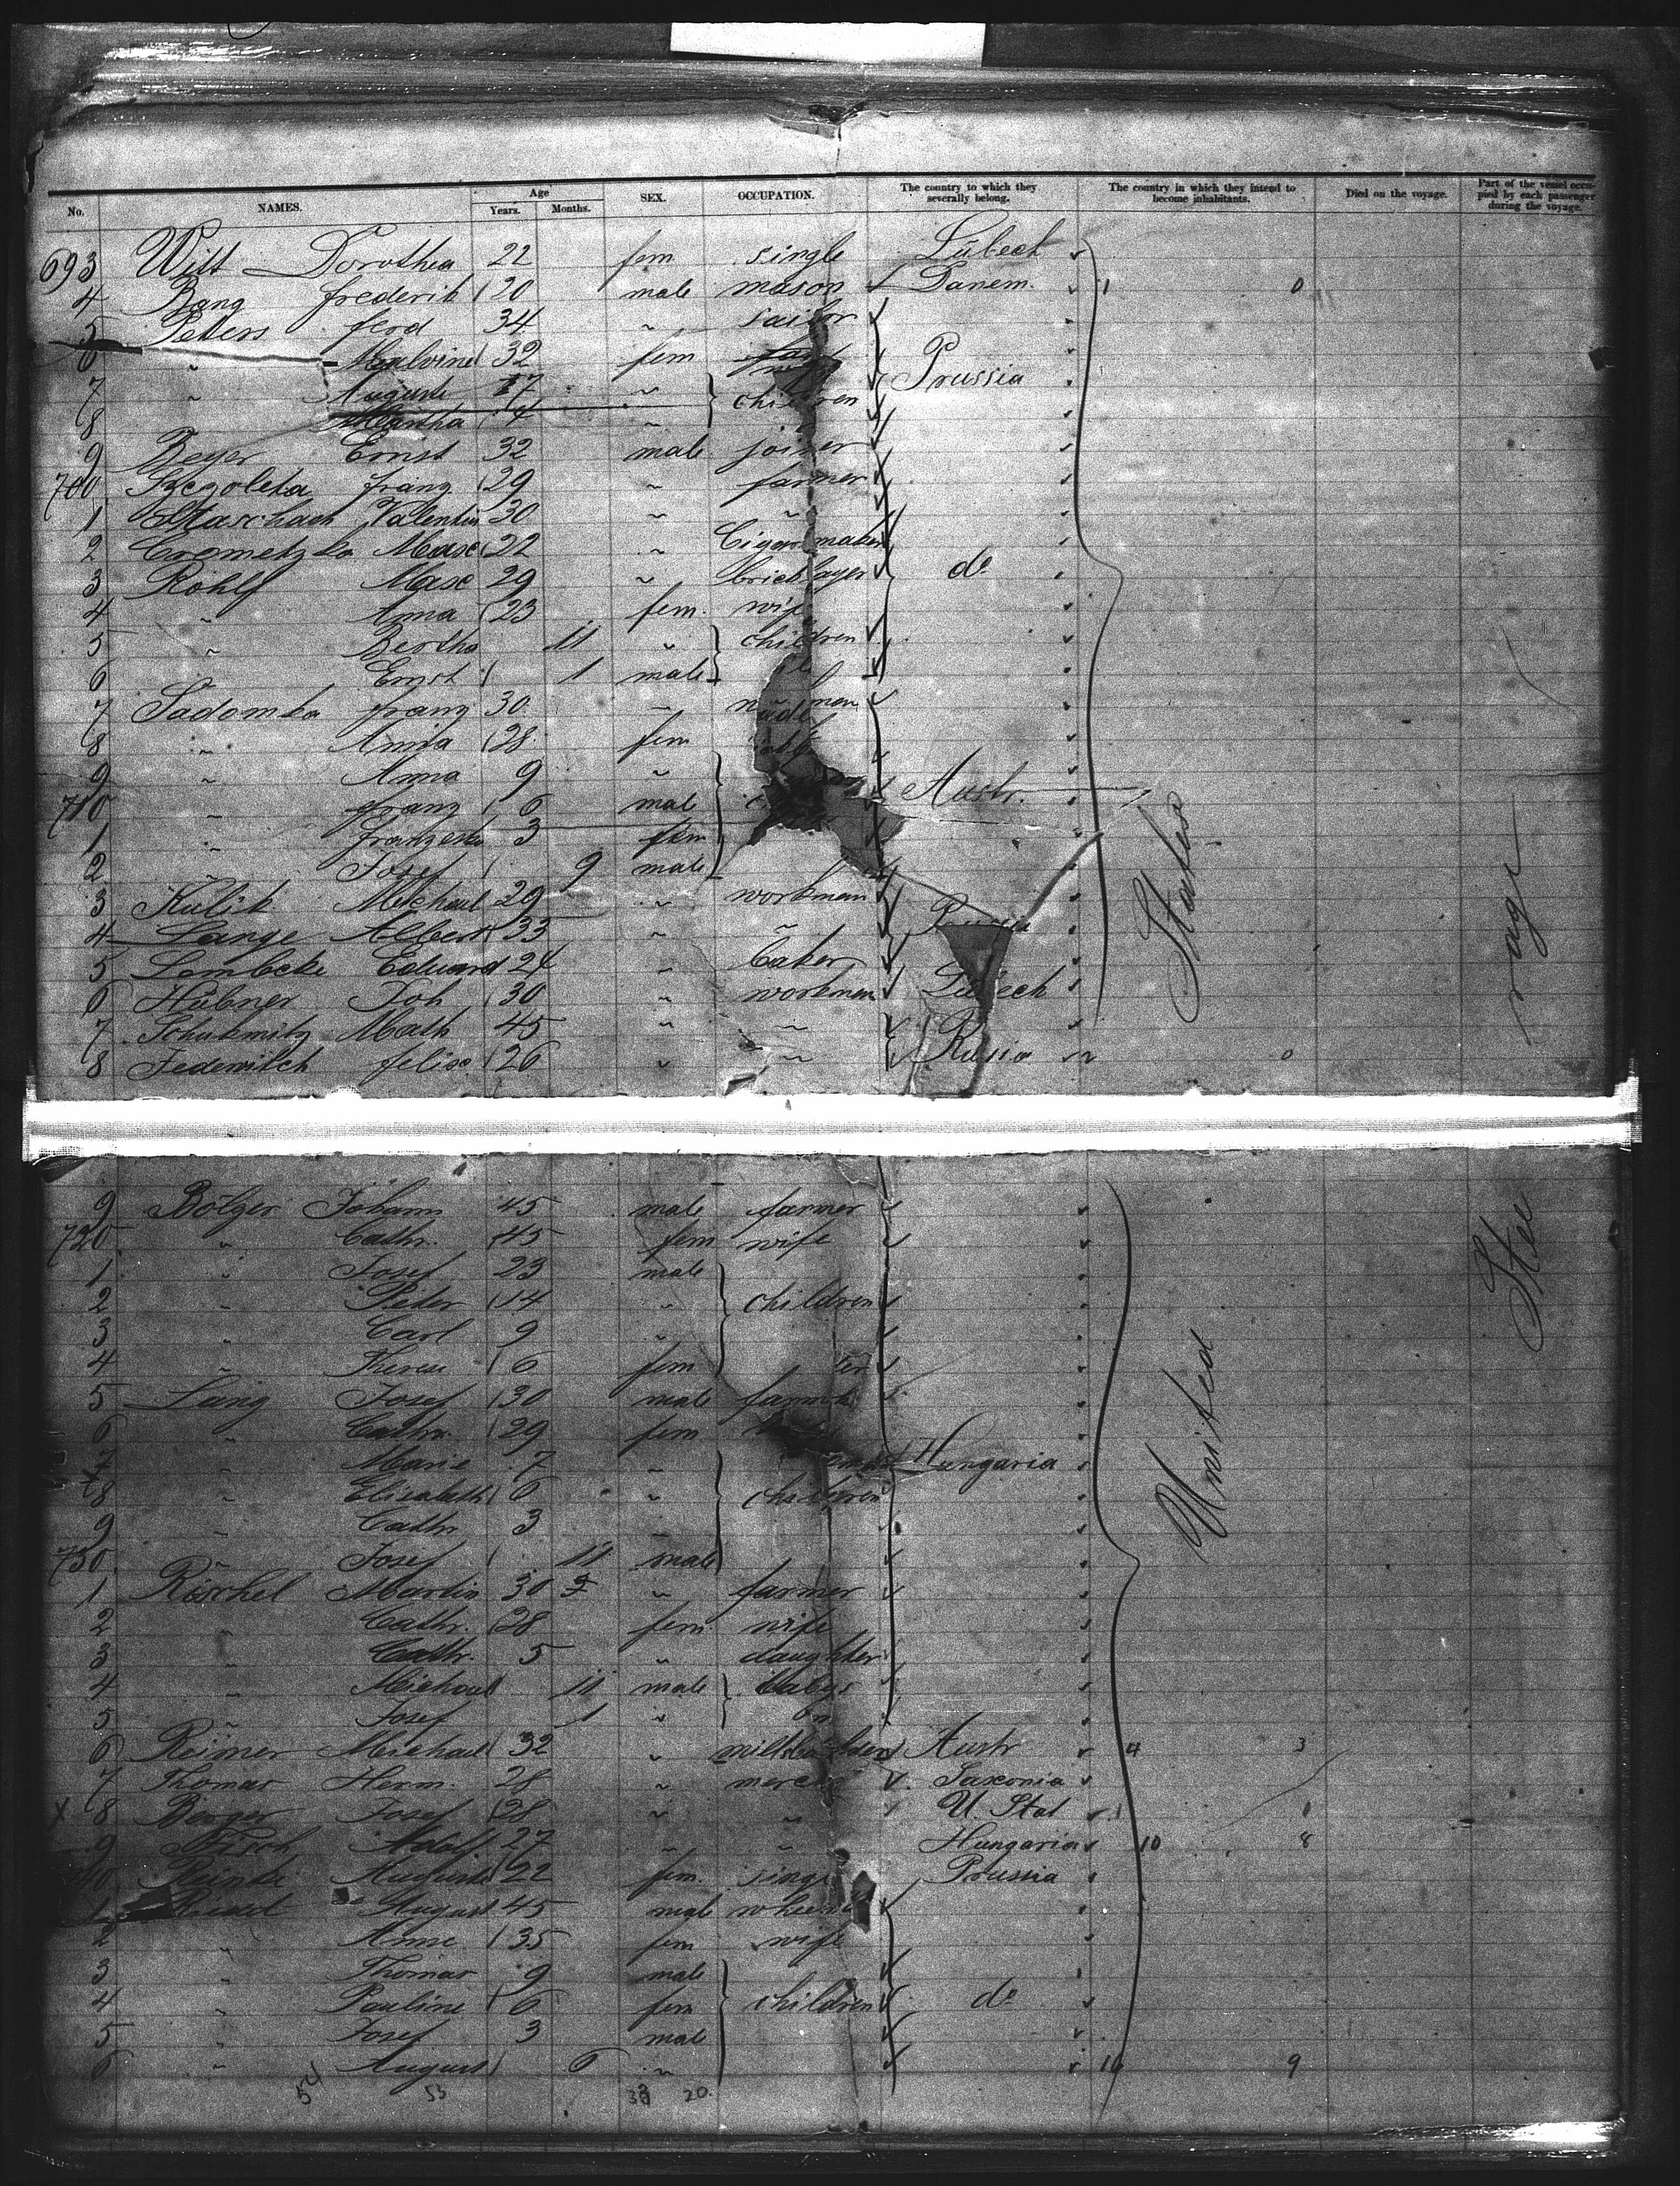 No. NAMES. Age Years. Months. SEX. OCCUPATION. The country to which they severally belong. The country in which they intend to become inhabitants. Died on the voyage. Part of the vessel occupied by each passenger during the voyage.
693 Witt Dorothea 22 fem single Lübeck
4 Bang frederik 20 male mason Danem. 1 0
5 Peters ferd 34 " sailor
6 " Malvine 32 fem
7 " Auguste 7 " children Prussia
8 Martha 4 "
9 Beyer Ernst 32 male joiner
700 franz 29 " farmer
1 Valentin 30 " "
2 Max 22 " Cigarrmaker
3 Rohlf Max 29 " bricklayer do
4 " Anna 23 fem. wife
5 " Bertha 11 " children
6 Ernst 1 male
7 Sadomka franz 30 "
8 " Anna 28 fem
9 " Anna 9 "
710 " franz 6 male Austr.
1 " 3 fem
2 " Josef 9 male
3 Kulik Michael 29 " workman
4 Lange Albert 33 " "
5 Lembcke Eduard 24 " baker
6 Hübner Joh 30 " workman Lübeck
7 Math 45 " "
8 Fedewitch felix 26 " " Rusia 0
States
rage
9 Bölger Johann 45 male farmer
720 " Cathr. 45 fem wife
1 " Josef 23 male
2 " Peder 14 " children
3 " Carl 9 "
4 " Therese 6 fem
5 Lang Josef 30 male
6 " Cathr. 29 fem
7 " Marie 7 " Hungaria
8 " Elisabeth 6 " children
9 " Cathr 3 "
730 " Josef 11 male
1 Röschel Martin 30 " farmer
2 " Cathr. 28 fem wife
3 " Cathr. 5 " daughter
4 " Michael 11 male babys
5 " Josef 1 "
6 Reimer Michael 32 " Austr 4 3
7 Thomas Herm. 28 " Saxonia
x 8 Berger Josef 28 " " U. Stat 1
9 Adolf 27 " " Hungaria 10 8
40 Reinke Auguste 22 fem. Prussia
1 August 45 male
2 " Anne 35 fem wife
3 " Thomas 9 male
4 " Pauline 6 fem children do
5 " Josef 3 male
6 " August 6 " 9
United
Stee
54 53 20